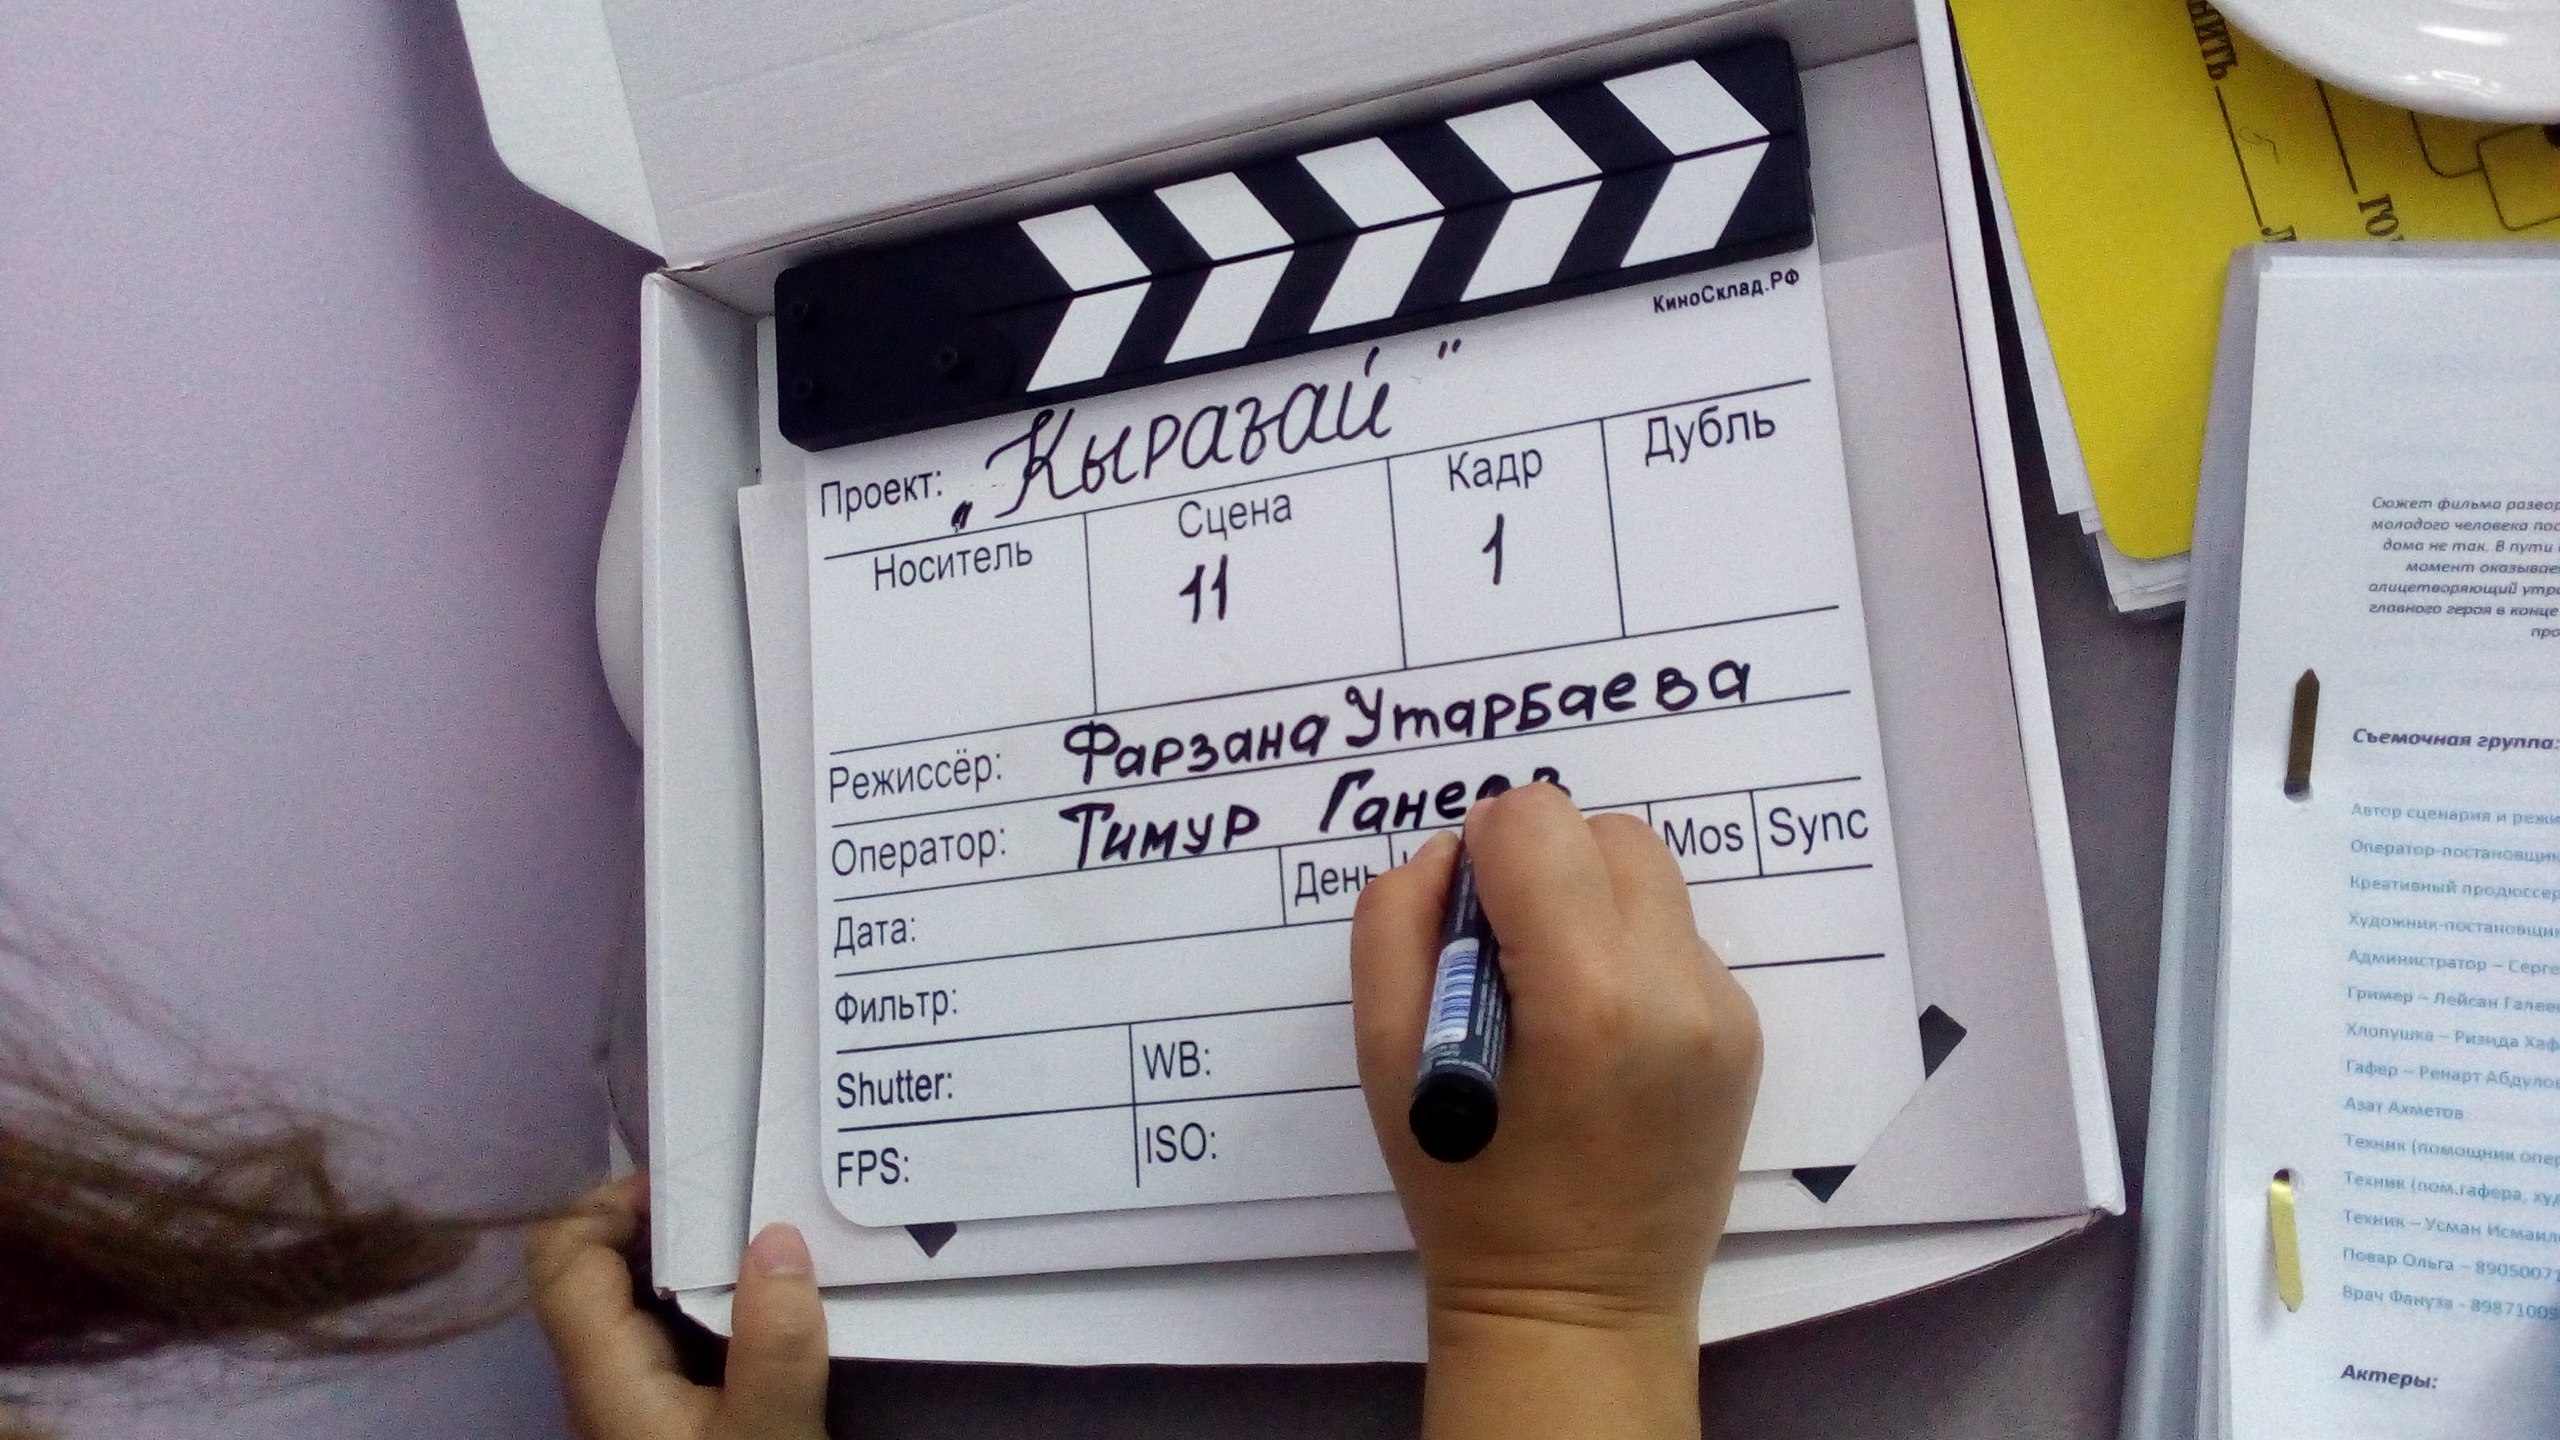 КиноСклад.РФ
Проект: „Кыразай"
Носитель Сцена Кадр Дубль
11 1
Режиссёр: Фарзана Утарбаева
Оператор: Тимур Ганеев
Дата: День Mos Sync
Фильтр:
Shutter: WB:
FPS: ISO:
Сюжет фильма
молодого человека
дома не так. В пути
момент
олицетворяющий
главного героя в конце
Съемочная группа:
Автор сценария и
Оператор-постановщик
Креативный продюссер
Художник-постановщик
Администратор –
Гример – Лейсан
Хлопушка – Ризида
Гафер – Ренарт
Азат Ахметов
Техник (помощник
Техник (пом.гафера,
Техник – Усман
Повар Ольга – 8905007
Врач Фануза - 8987100
Актеры: